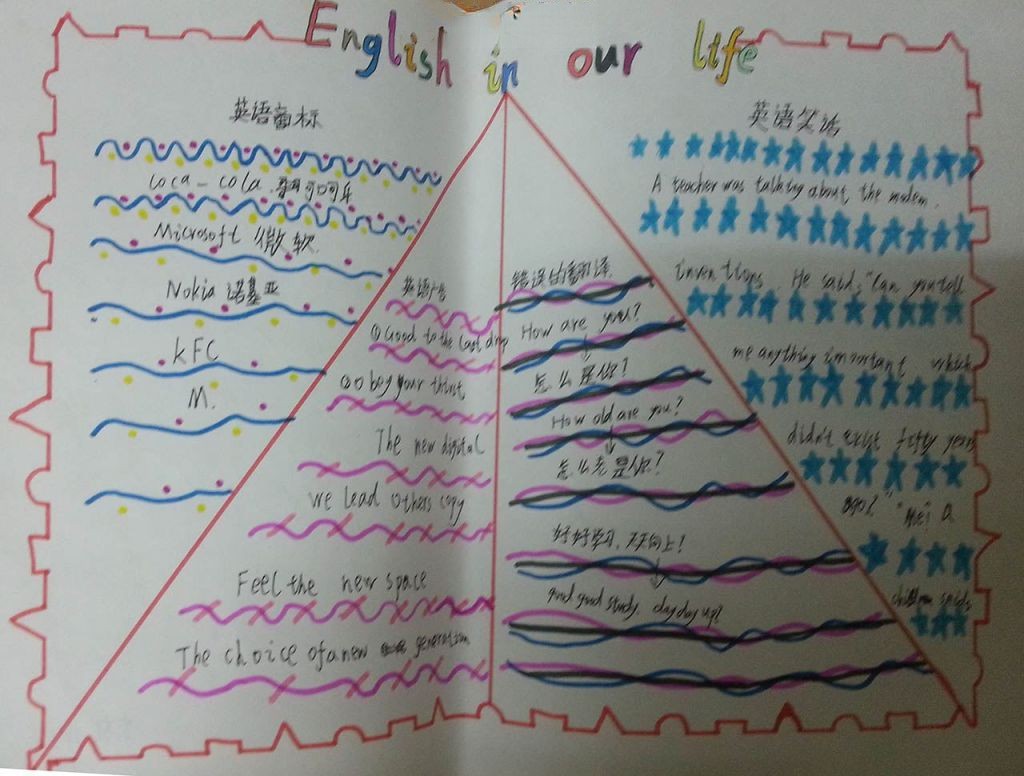 English in our life
英语商标
Coca-Cola 可口可乐
Microsoft 微软
Nokia 诺基亚
KFC
M.
英语广告
①Good to the last drop
②Obey your thirst
The new digital
We lead Others copy
Feel the new space
The choice of a new generation
错误的翻译
How are you?
怎么是你?
How old are you?
怎么老是你?
好好学习,天天向上!
good good study, day day up!
英语笑话
A teacher was talking about the modern.
inventions. He said, "Can you tell
me anything important which
didn't exist fifty years
ago?" "Me!" a
child said